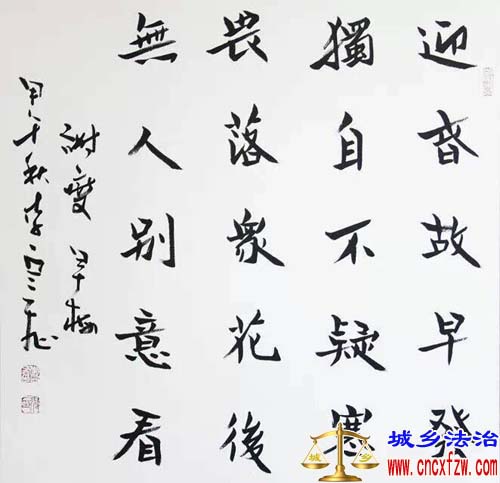 迎旾故早發
獨自不疑寒
畏落衆花後
無人別意看
謝燮 早梅
甲午秋李
城乡
城乡法治
www.cncxfzw.com